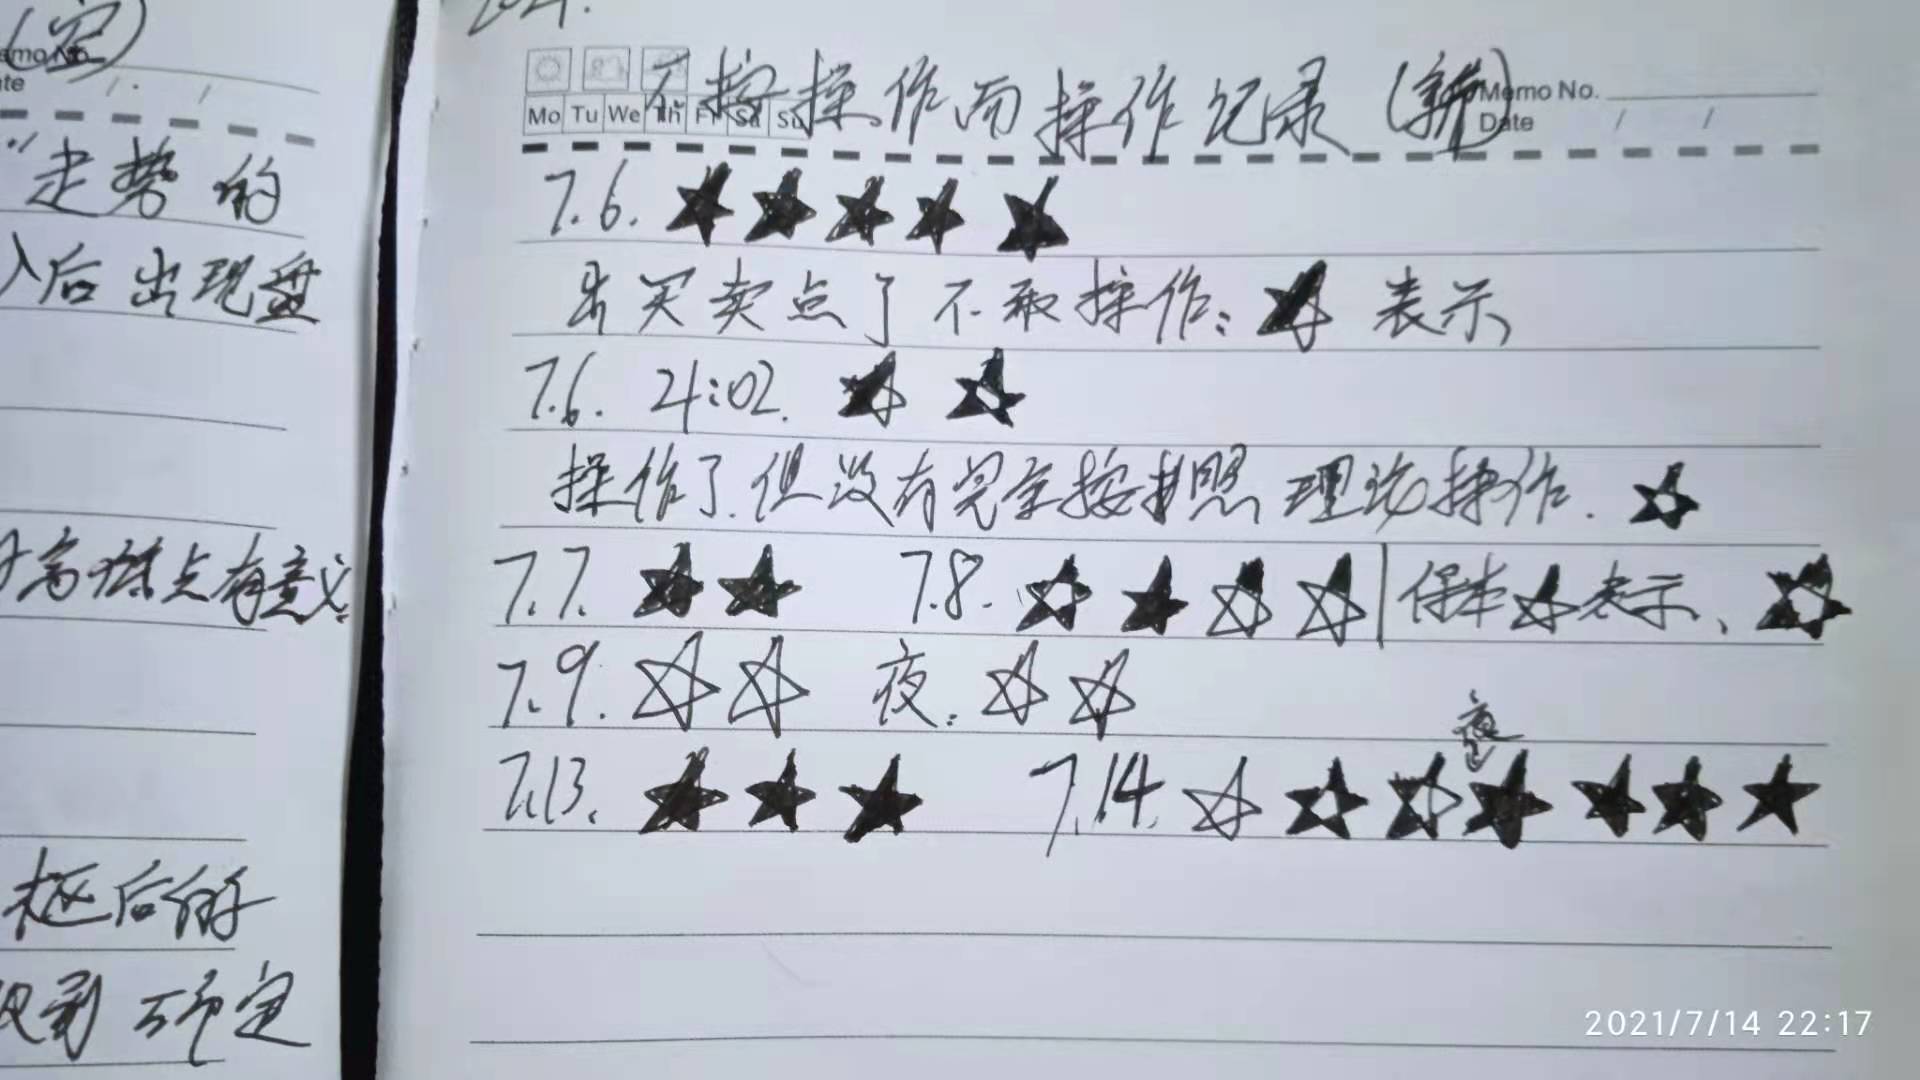 (空)
Memo No.
"走势的
入后出现盘
高低点有意义
枢后的
确定
2021.
不按操作而操作记录(新)
Memo No.
Mo Tu We Th Fr Sa Su
Date / /
7.6. ★★★★★
出买卖点了不敢操作: ★表示
7.6. 21:02. ★★
操作了.但没有完全按照理论操作. ☆
7.7. ★★ 7.8. ☆★☆☆ | 保本☆表示、☆
7.9. ☆☆ 夜: ☆☆
夜
7.13. ★★★ 7.14. ☆☆☆★★★★
2021/7/14 22:17